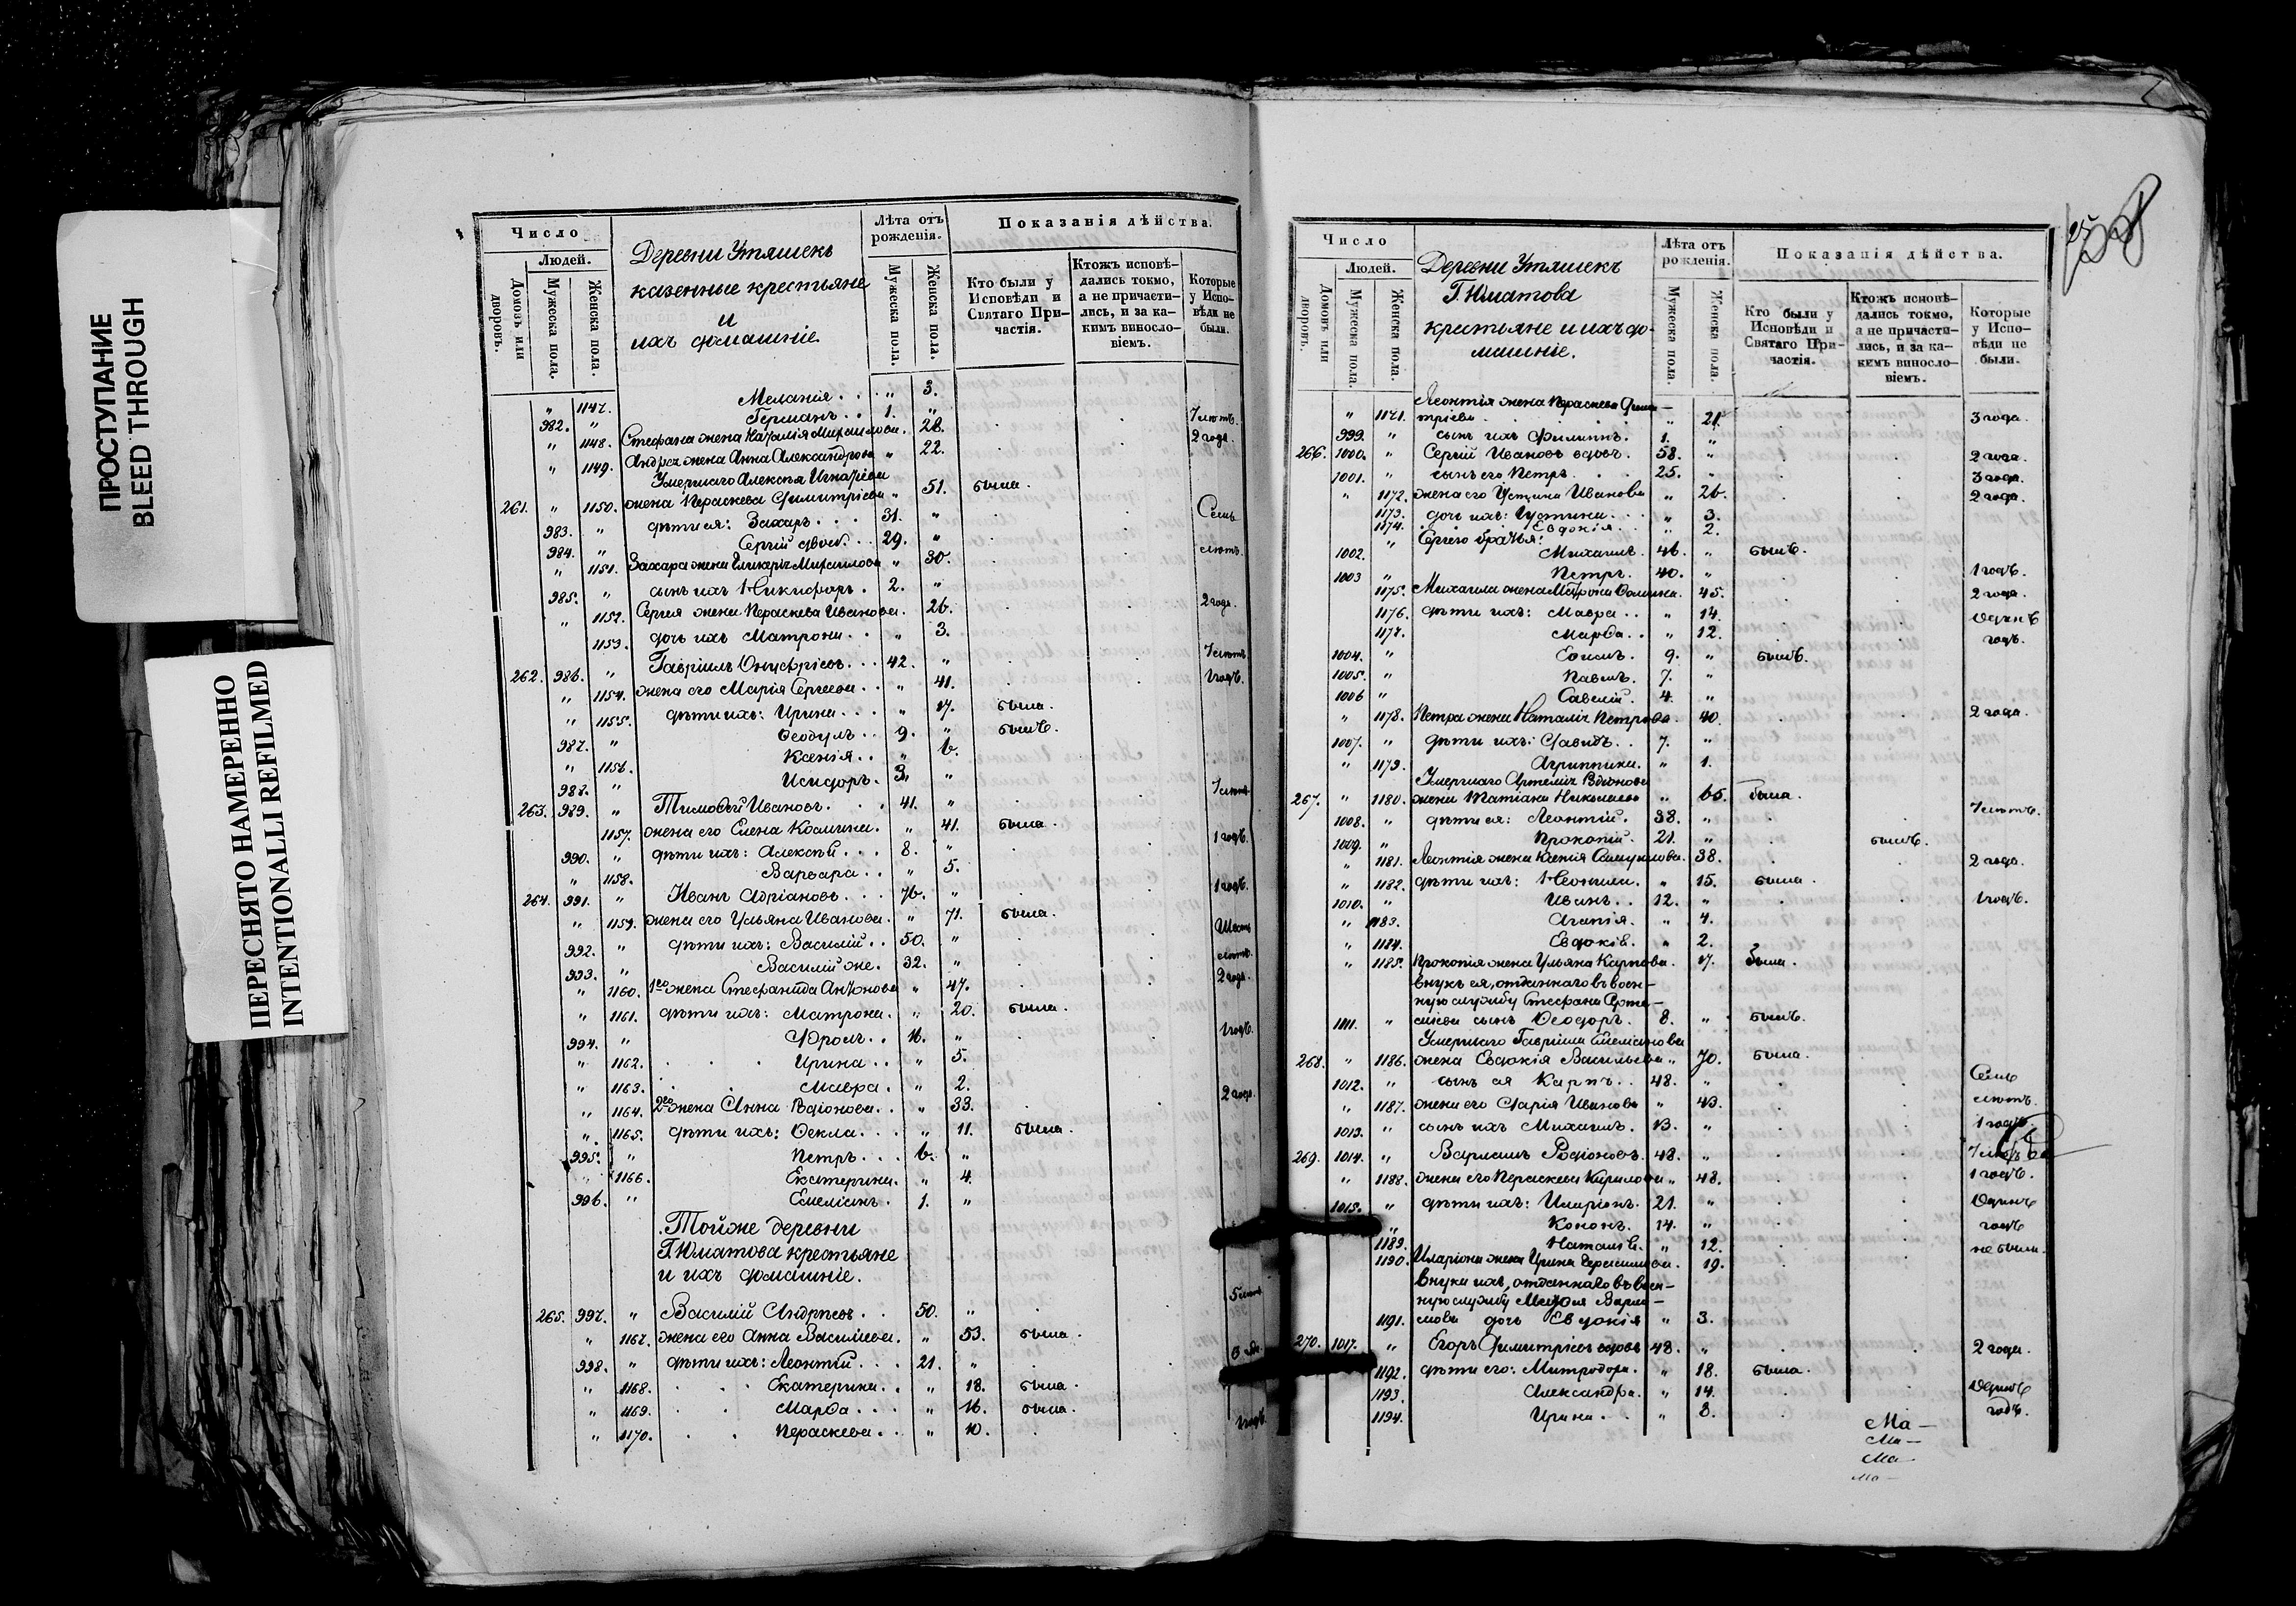 ПРОСТУПАНИЕ
BLEED THROUGH
ПЕРЕСНЯТО НАМЕРЕННО
INTENTIONALLI REFILMED
Число
Людей.
Домовъ или дворовъ.
Мужеска пола.
Женска пола.
Деревни Утяшекъ
казенные крестьяне
и
ихъ домашніе.
Лѣта отъ рожденія.
Мужеска пола.
Женска пола.
Показанія дѣйства.
Кто были у Исповѣди и Святаго Причастія.
Ктожъ исповѣдались токмо, а не причастились, и за какимъ винословіемъ.
Которые у Исповѣди не были.
" 1147. Меланія . . . " 3.
982. " Германъ . . 1. " 7 лѣтъ.
" 1148. Стефана жена Наталія Михаилова. 28. 2 года.
" 1149. Андрея жена Анна Александрова " 22.
Умершаго Алексѣя Игнатіева
261. " 1150. жена Параскева Димитріева " 51. была.
983. " дѣти ея: Захаръ . . . 31. " Семь
984. " Сергій двоеб. . 29. " лѣтъ.
" 1151. Захара жена Гликерія Михаилова " 30.
985. " сынъ ихъ Никифоръ . 2. "
" 1152. Сергія жена Параскева Иванова. 26. 2 года.
1153. дочь ихъ Матрона . . " 3.
262. 986. " Гавріилъ Онуфріевъ . . . 42. " 7 лѣтъ
" 1154. жена его Марія Сергіева . . " 41. 1 годъ.
" 1155. дѣти ихъ: Ирина . . . " 17. была.
987. " Ѳеодулъ . . 9. " былъ.
" 1156. Ксенія . . " 6.
988. " Исидоръ . 3. "
263. 989. " Тимоѳей Ивановъ . . . 41. " 7 лѣтъ
1157. жена его Елена Космина. " 41. была.
990. " дѣти ихъ: Алексѣй . . . 8. " 1 годъ.
" 1158. Варвара . . " 5.
264. 991. " Иванъ Адріановъ . . . 76. " 1 годъ.
" 1159. жена его Ульяна Иванова. " 71. была.
992. " дѣти ихъ: Василій . . 50. " Шесть
993. " Василій же. 32. " лѣтъ.
" 1160. 1го жена Стефанида Антонова " 47. 2 года.
" 1161. дѣти ихъ: Матрона. " 20. была.
994. " Фролъ . . 16. " 1 годъ.
" 1162. Ирина . . " 5.
" 1163. Мавра . " 2.
" 1164. 2го жена Анна Родіонова . . " 33. 2 года.
" 1165. дѣти ихъ: Ѳекла . . . " 11. была.
995. " Петръ . . . 6. "
" 1166. Екатерина. " 4.
996. " Емеліанъ . 1. "
Тойже деревни
Г. Юматова крестьяне
и ихъ домашніе.
265. 997. " Василій Андреевъ . . 50. " 5 лѣтъ
" 1167. жена его Анна Василіева. " 53. была.
998. " дѣти ихъ: Леонтій . . . 21. "
" 1168. Екатерина . . " 18. была.
" 1169. Марѳа . . . " 16. была.
" 1170. Параскева . . " 10. 1 годъ.
Число
Людей.
Домовъ или дворовъ.
Мужеска пола.
Женска пола.
Деревни Утяшекъ
Г. Юматова
крестьяне и ихъ до-
машніе.
Лѣта отъ рожденія.
Мужеска пола.
Женска пола.
Показанія дѣйства.
Кто были у Исповѣди и Святаго Причастія.
Ктожъ исповѣдались токмо, а не причастились, и за какемъ винословіемъ.
Которые у Исповѣди не были.
Леонтія жена Параскева Дими-
" 1171. тріева . . . " 21. 3 года.
999. " сынъ ихъ Филиппъ. 1. "
266. 1000. " Сергій Ивановъ вдовъ. 58. " 2 года.
1001. " сынъ его Петръ . . 25. " 3 года.
" 1172. жена его Устина Иванова " 26. 2 года.
1173. дочь ихъ: Устина . . . " 3.
1174. Евдокія . . " 2.
Сергія братья:
1002. " Михаилъ. 46. " былъ.
1003 " Петръ. 40. " 1 годъ.
1175. Михаила жена Матрона Ѳомина. 45. 2 года.
1176. дѣти ихъ: Мавра . . " 14. Одинъ
1177. Марѳа . . " 12. годъ.
1004. " Евѳимъ. 9. " былъ.
1005. " Павелъ. 7. "
1006 " Савелій. 4. "
" 1178. Петра жена Наталія Петрова. 40. 2 года.
1007. " дѣти ихъ: Давидъ . . 7. "
" 1179. Агриппина. " 1.
Умершаго Артемія Родіонова
267. " 1180. жена Татіана Николаева " 65. была.
1008. " дѣти ея: Леонтій. 38. " 7 лѣтъ.
1009. " Прокопій. 21. " былъ.
" 1181. Леонтія жена Ксенія Самуилова. 38. 2 года.
" 1182. дѣти ихъ: Неонила. " 15. была.
1010. " Иванъ . . 12. " 1 годъ.
" 1183. Агапія. " 4.
" 1184. Евдокія. " 2.
" 1185. Прокопія жена Ульяна Карпова. 17. была.
внукъ ея, отданнаго въ воен-
ную службу Стефана Арте-
1011. " міева сынъ Ѳеодоръ. 8. " былъ.
Умершаго Гавріила Емеліанова
268. " 1186. жена Евдокія Васильева " 70. была.
1012. " сынъ ея Карпъ . . 48. " Семь
" 1187. жена его Дарія Иванова " 43. лѣтъ.
1013. " сынъ ихъ Михаилъ. 13. " 1 годъ.
269. 1014. " Варлаамъ Родіоновъ. 48. "
" 1188. жена его Параскева Кирилова " 48. 1 годъ.
1015. " дѣти ихъ: Иларіонъ. 21. " Одинъ
" Кононъ. 14. " годъ
1189. Наталія. " 12. не была.
1190. Иларіона жена Ирина Герасимова. 19.
Внука ихъ, отданнаго въ воен-
ную службу Меѳодія Варла-
1191. мова дочь Евдокія " 3.
270. 1017. " Егоръ Димитріевъ вдовъ 48. " 2 года.
1192. дѣти его: Митродора. " 18. была.
1193. Александра. " 14. Одинъ
1194. Ирина . . " 8. годъ.
Ма—
Ма—
Ма—
Ма—